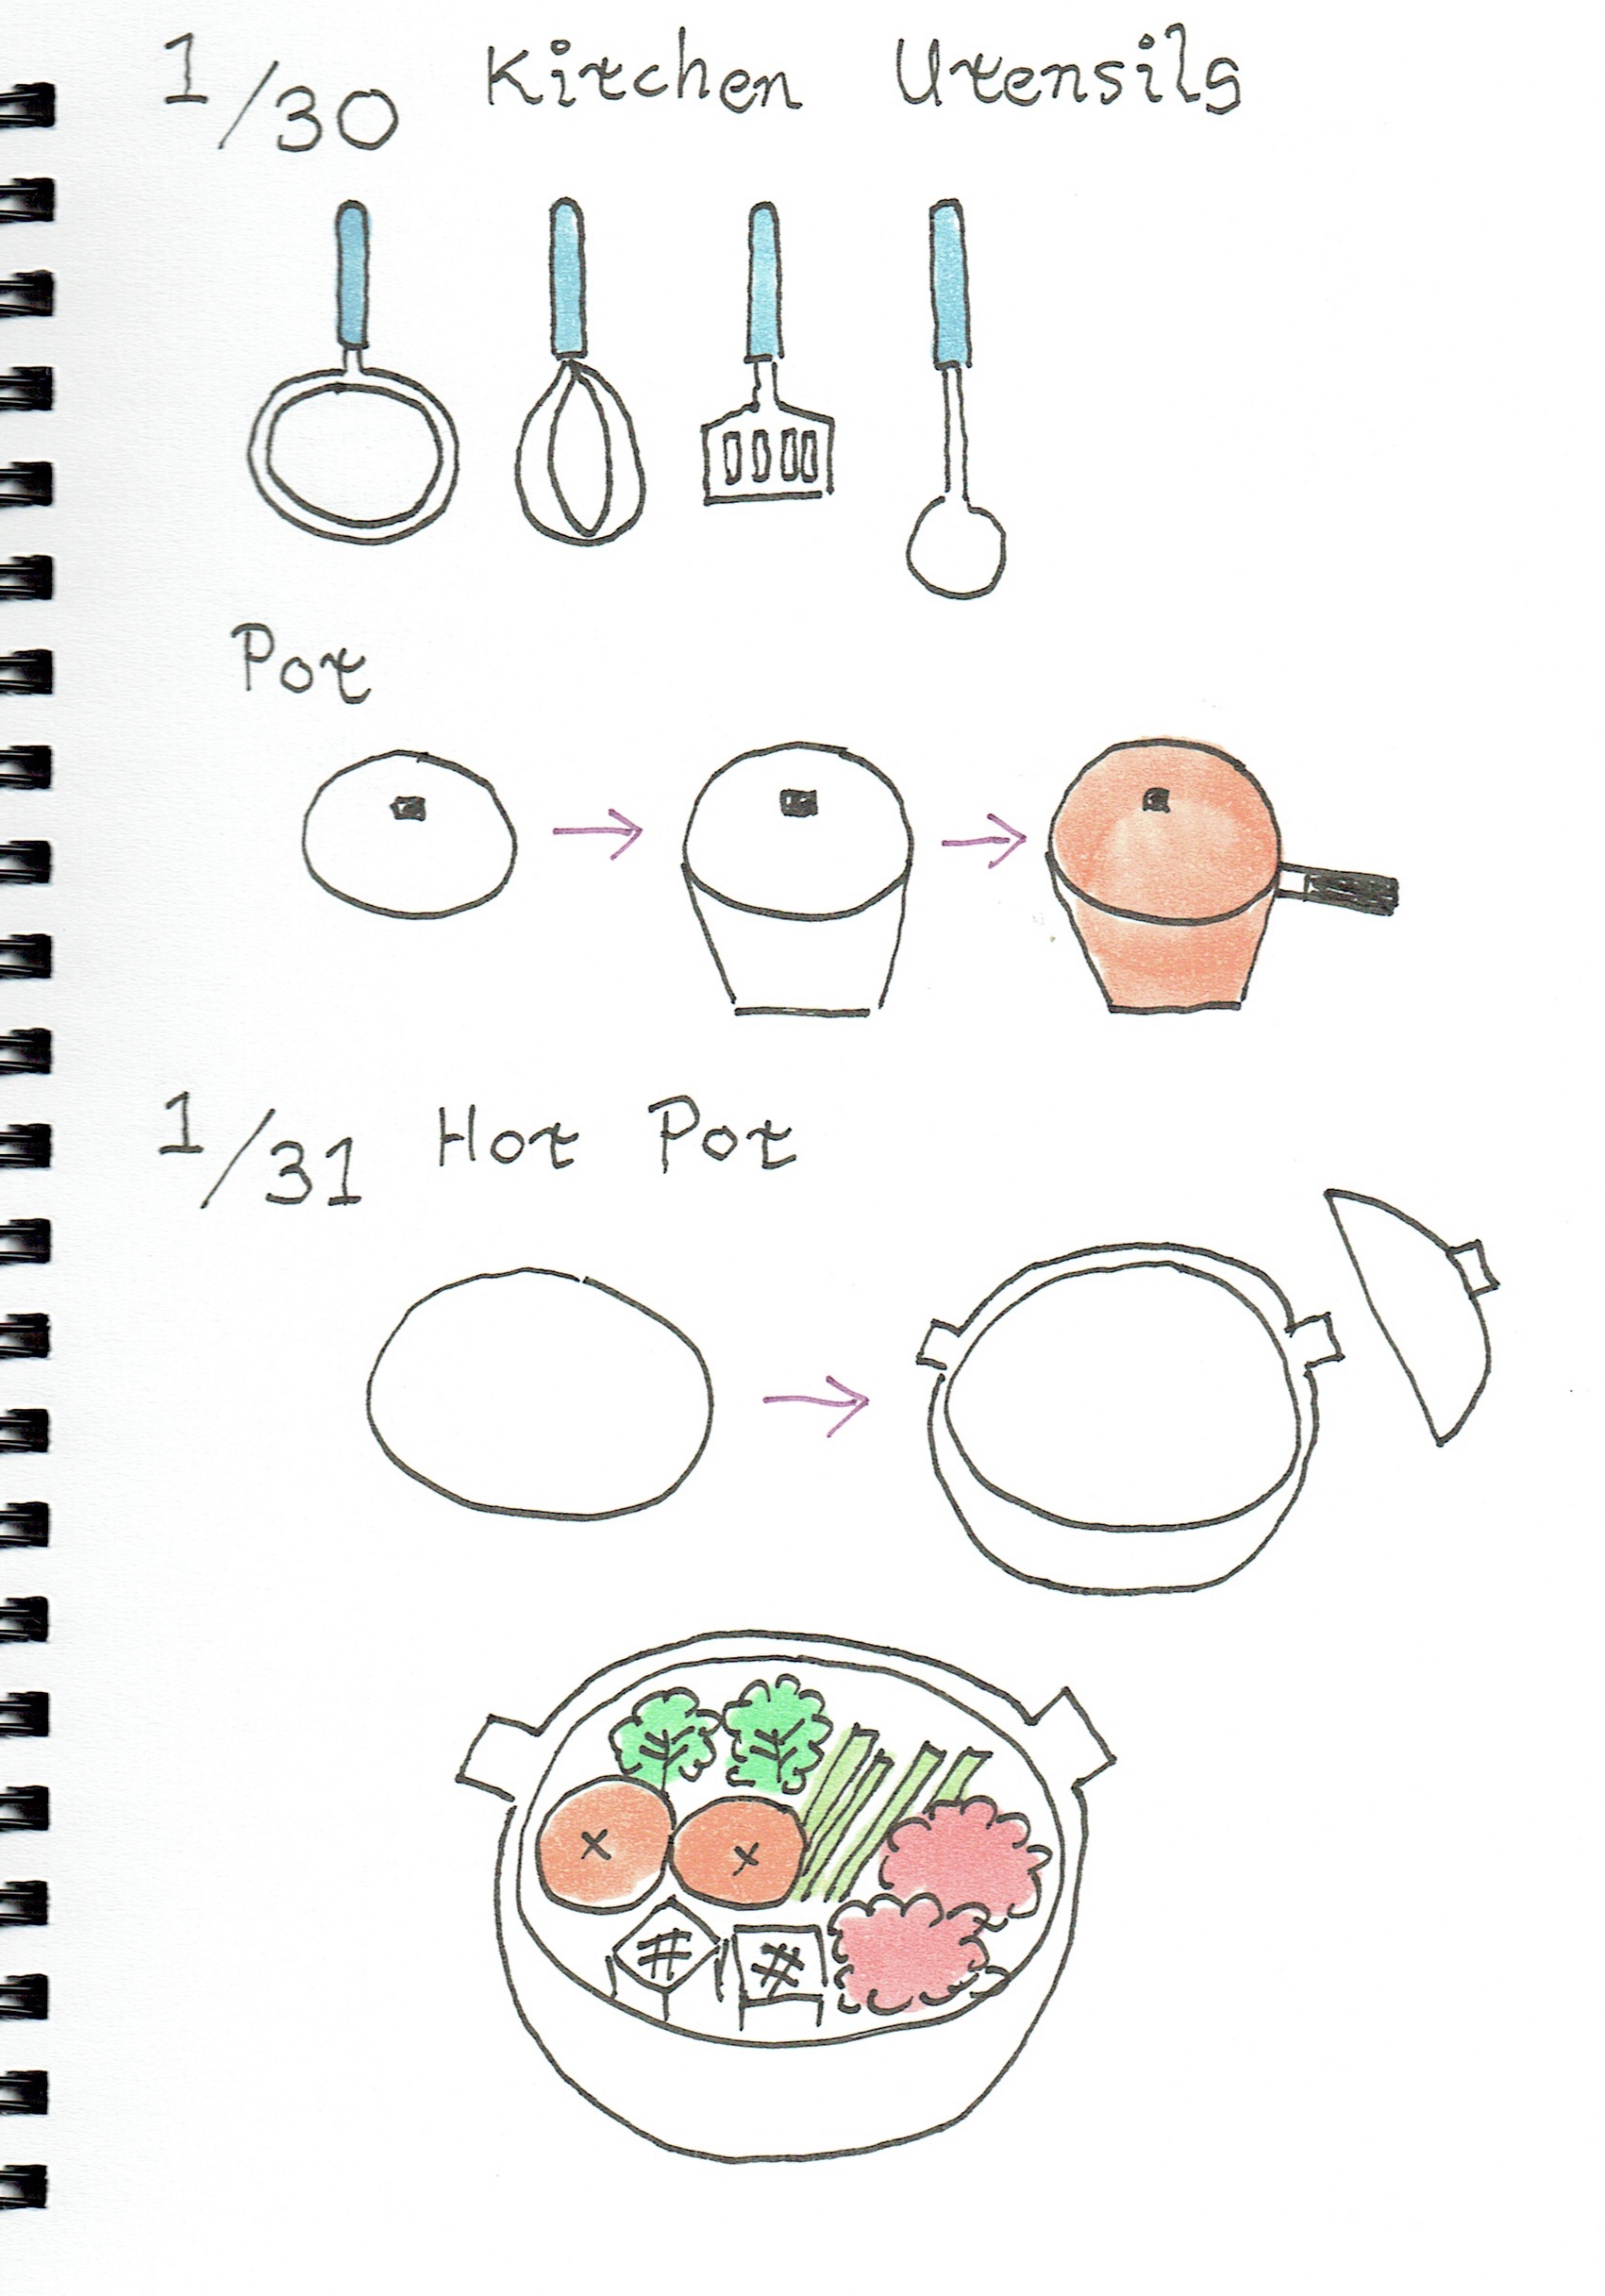 1/30 Kitchen Utensils
Pot
1/31 Hot Pot